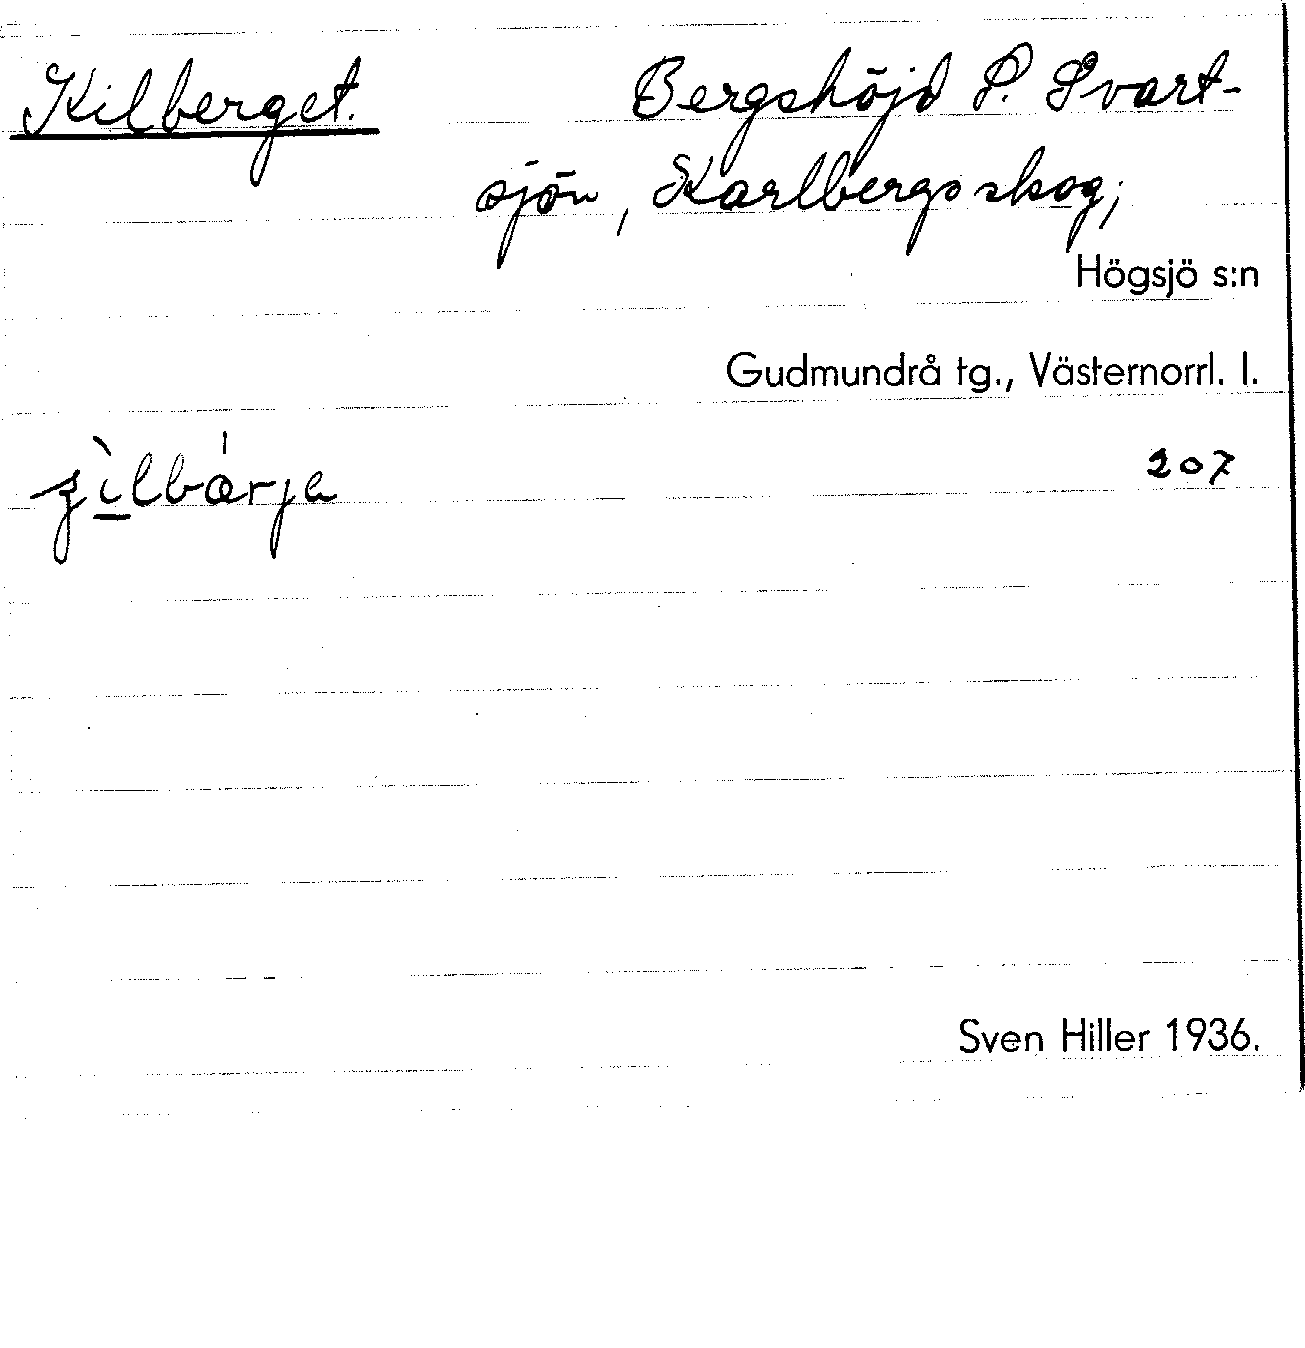 Kilberget. Bergshöjd S. Svart-
sjön, Karlbergsskog;
Högsjö s:n
Gudmundrå tg., Västernorrl. l.
207
Sven Hiller 1936.